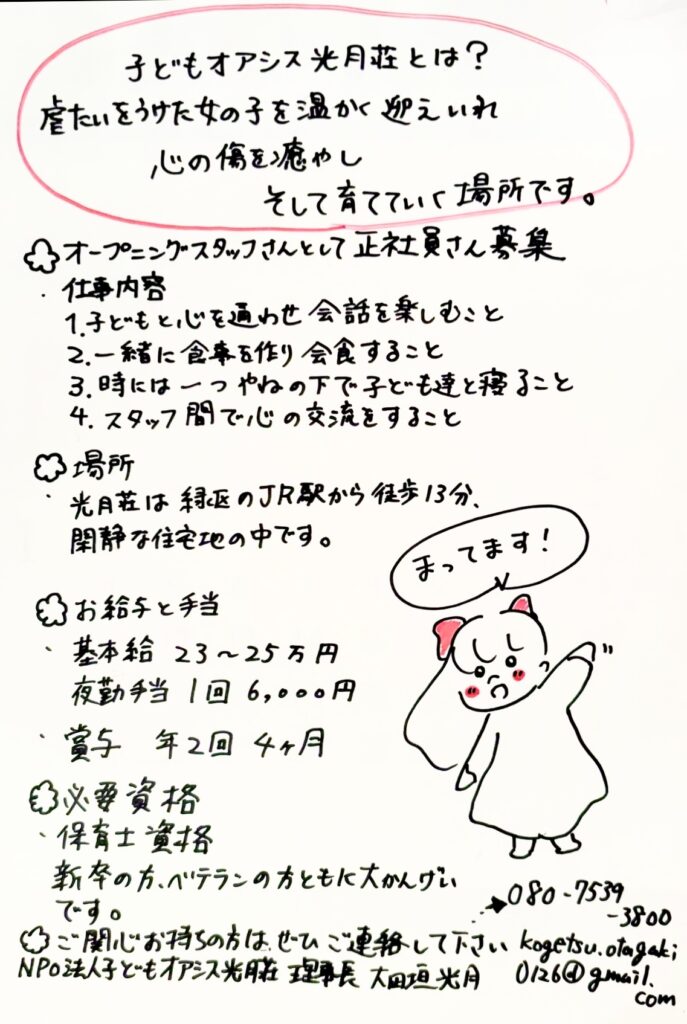 子どもオアシス光月荘とは？
虐たいをうけた女の子を温かく迎えいれ
心の傷を癒やし
そして育てていく場所です。
オープニングスタッフさんとして正社員さん募集
・仕事内容
1.子どもと心を通わせ会話を楽しむこと
2.一緒に食事を作り会食すること
3.時には一つやねの下で子ども達と寝ること
4.スタッフ間で心の交流をすること
場所
・光月荘は緑区のJR駅から徒歩13分、
閑静な住宅地の中です。
まってます！
お給与と手当
・基本給 23〜25万円
夜勤手当 1回 6,000円
・賞与 年2回 4ヶ月
必要資格
・保育士資格
新卒の方、ベテランの方ともに大かんげい
です。
ご関心お持ちの方は、ぜひご連絡して下さい
NPO法人子どもオアシス光月荘 理事長 大田垣光月
080-7539
-3800
kogetsu.otagaki
0126@gmail.
com